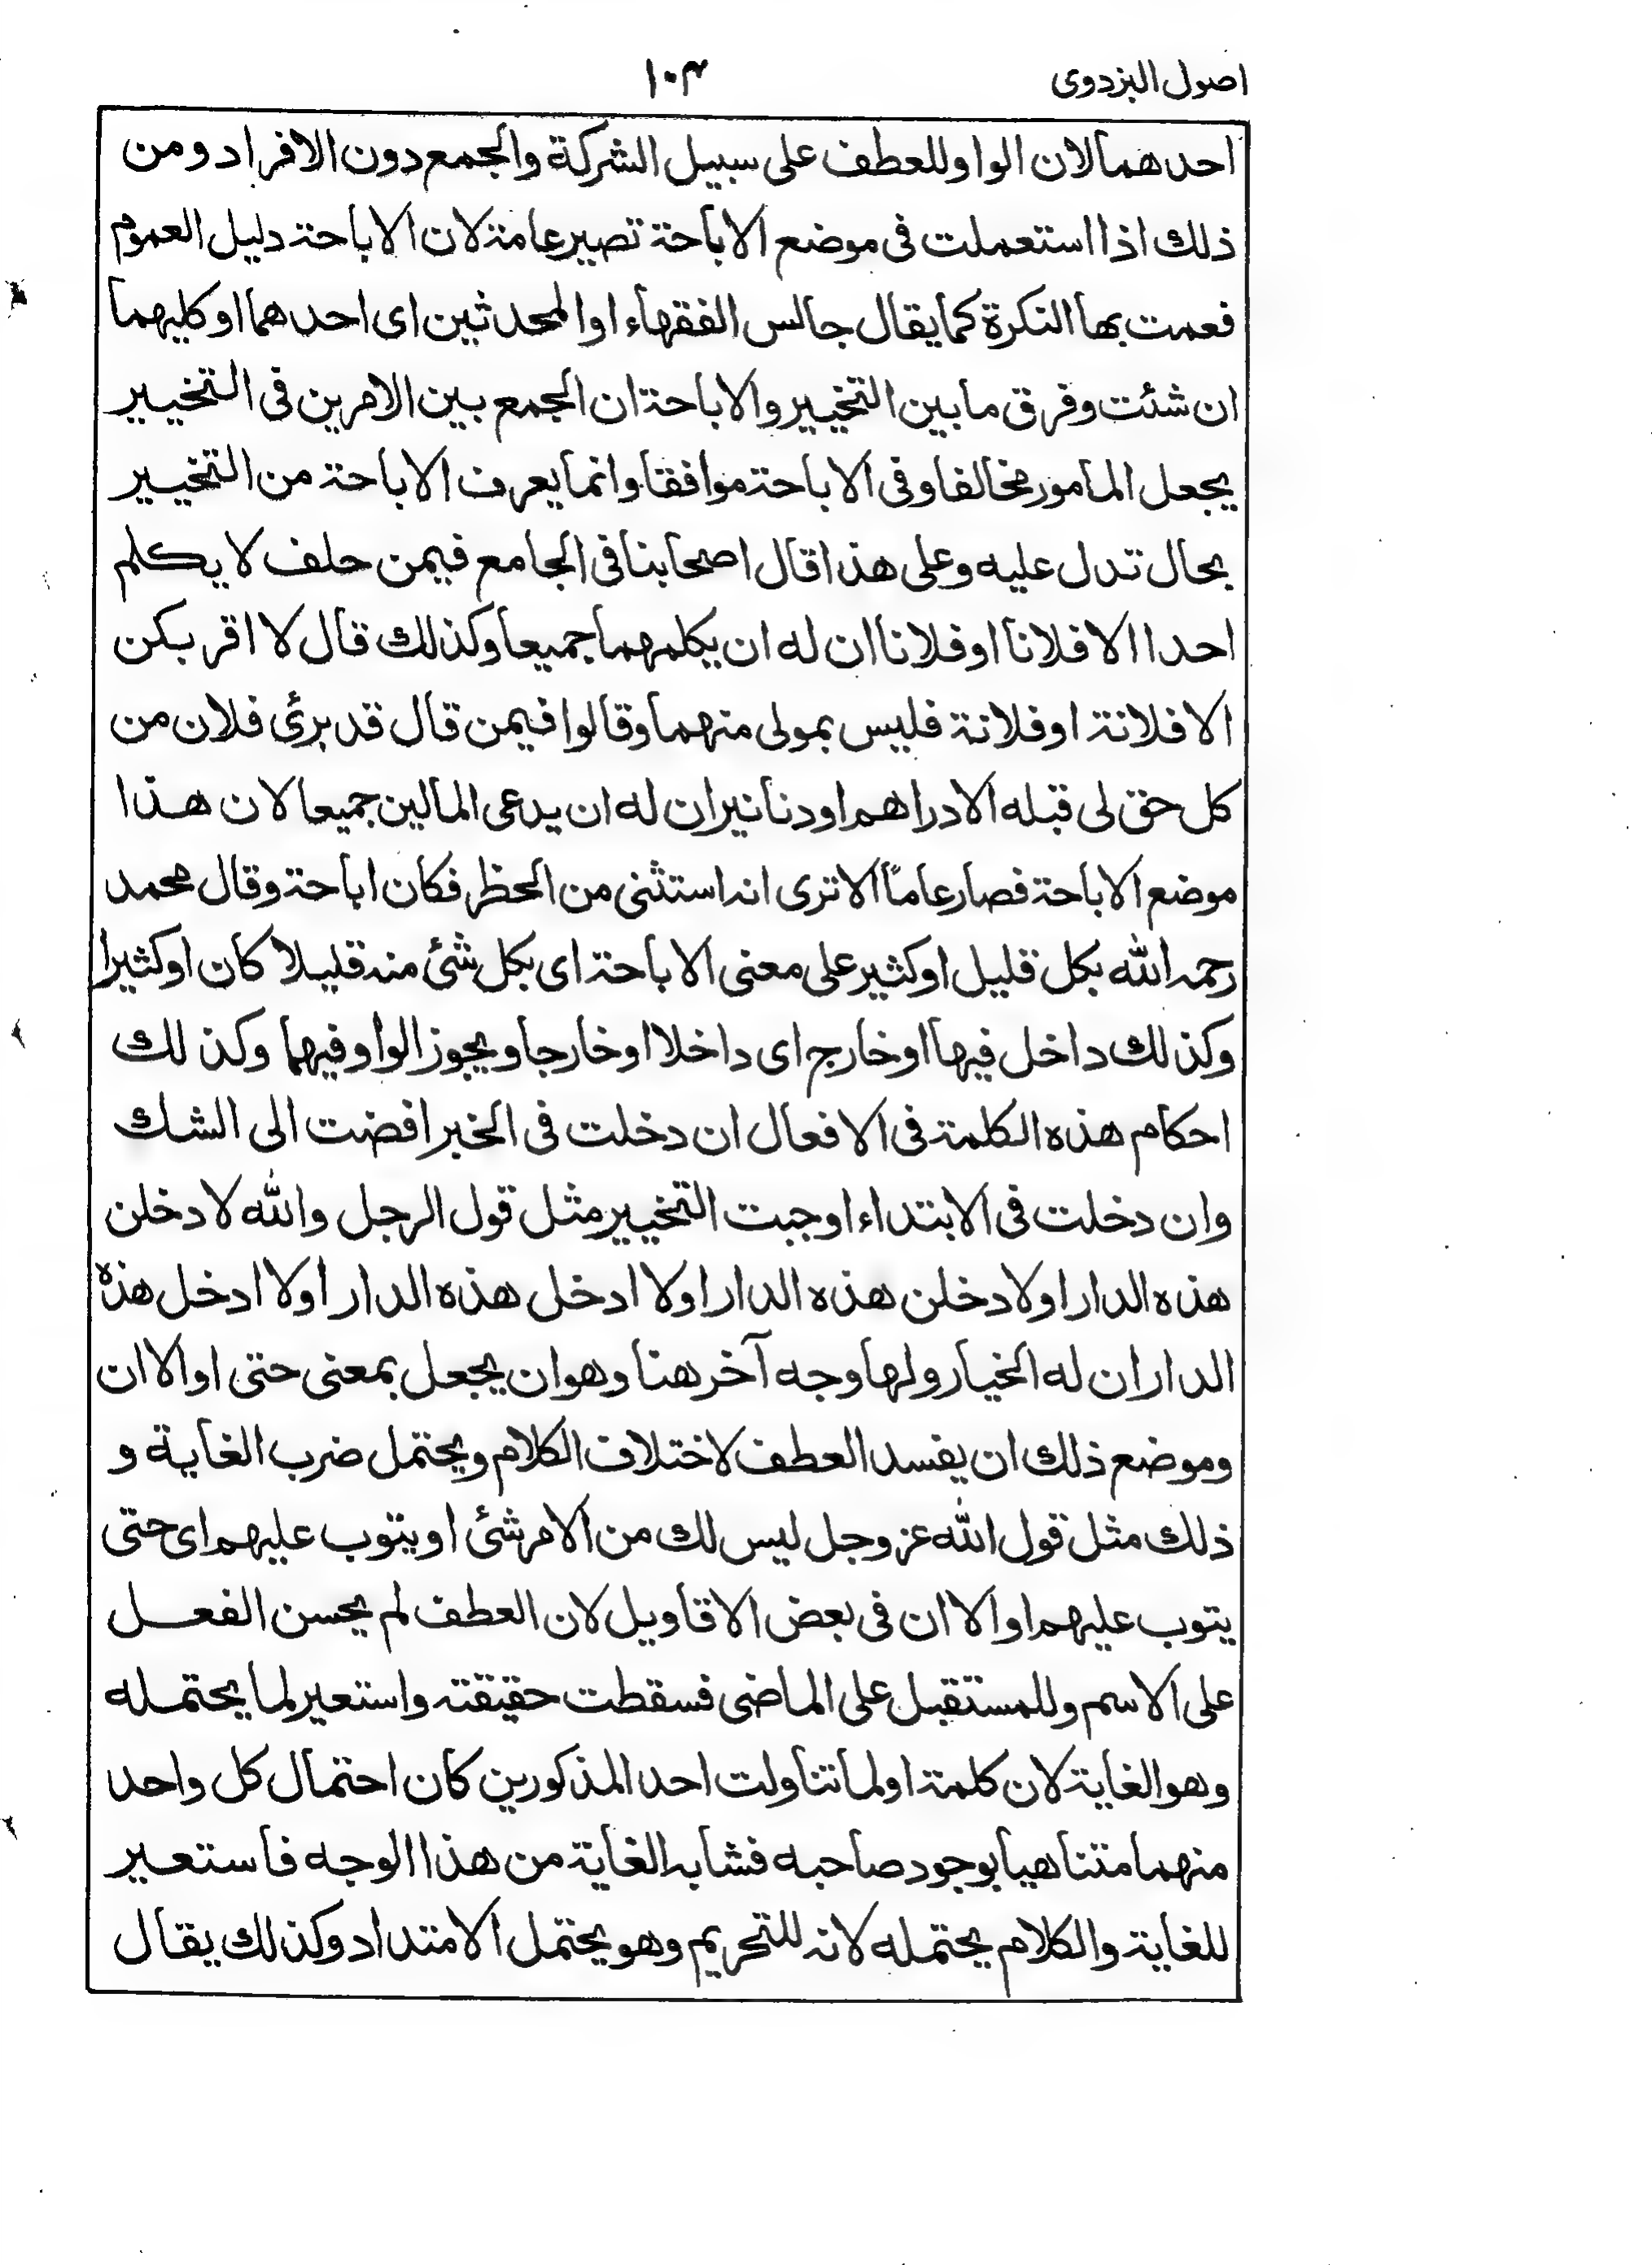 اصول البزدوى
١٠٤
احدهما لان الواو للعطف على سبيل الشركة والجمع دون الافراد ومن
ذلك اذا استعملت فى موضع الاباحة تصير عامة لان الاباحة دليل العموم
فعمت بها النكرة كما يقال جالس الفقهاء او المحدثين اى احدهما او كليهما
ان شئت وفرق ما بين التخيير والاباحة ان الجمع بين الامرين فى التخيير
يجعل المامور مخالفا وفى الاباحة موافقا وانما يعرف الاباحة من التخيير
بحال تدل عليه وعلى هذا قال اصحابنا فى الجامع فيمن حلف لا يكلم
احدا الا فلانا او فلانا ان له ان يكلمهما جميعا وكذلك قال لا اقربكن
الا فلانة او فلانة فليس بمولى منهما وقالوا فيمن قال قد برئ فلان من
كل حق لى قبله الا دراهم او دنانير ان له ان يدعى المالين جميعا لان هذا
موضع الاباحة فصار عاماً الا ترى انه استثنى من الحظر فكان اباحة وقال محمد
رحمه الله بكل قليل او كثير على معنى الاباحة اى بكل شئ منه قليلا كان او كثيرا
وكذلك داخل فيها او خارج اى داخلا او خارجا ويجوز الواو فيهما وكذلك
احكام هذه الكلمة فى الافعال ان دخلت فى الخبر افضت الى الشك
وان دخلت فى الابتداء اوجبت التخيير مثل قول الرجل والله لادخلن
هذه الدار اولادخلن هذه الدار اولا ادخل هذه الدار اولا ادخل هذه
الدار ان له الخيار ولها وجه آخر هنا وهو ان يجعل بمعنى حتى او الا ان
وموضع ذلك ان يفسد العطف لاختلاف الكلام ويحتمل ضرب الغاية و
ذلك مثل قول الله عز وجل ليس لك من الامر شئ او يتوب عليهم اى حتى
يتوب عليهم او الا ان فى بعض الاقاويل لان العطف لم يحسن الفعل
على الاسم وللمستقبل على الماضى فسقطت حقيقته واستعير لما يحتمله
وهو الغاية لان كلمة او لما تناولت احد المذكورين كان احتمال كل واحد
منهما متناهيا بوجود صاحبه فشابه الغاية من هذا الوجه فاستعير
للغاية والكلام يحتمله لانه للتحريم وهو يحتمل الامتداد وكذلك يقال